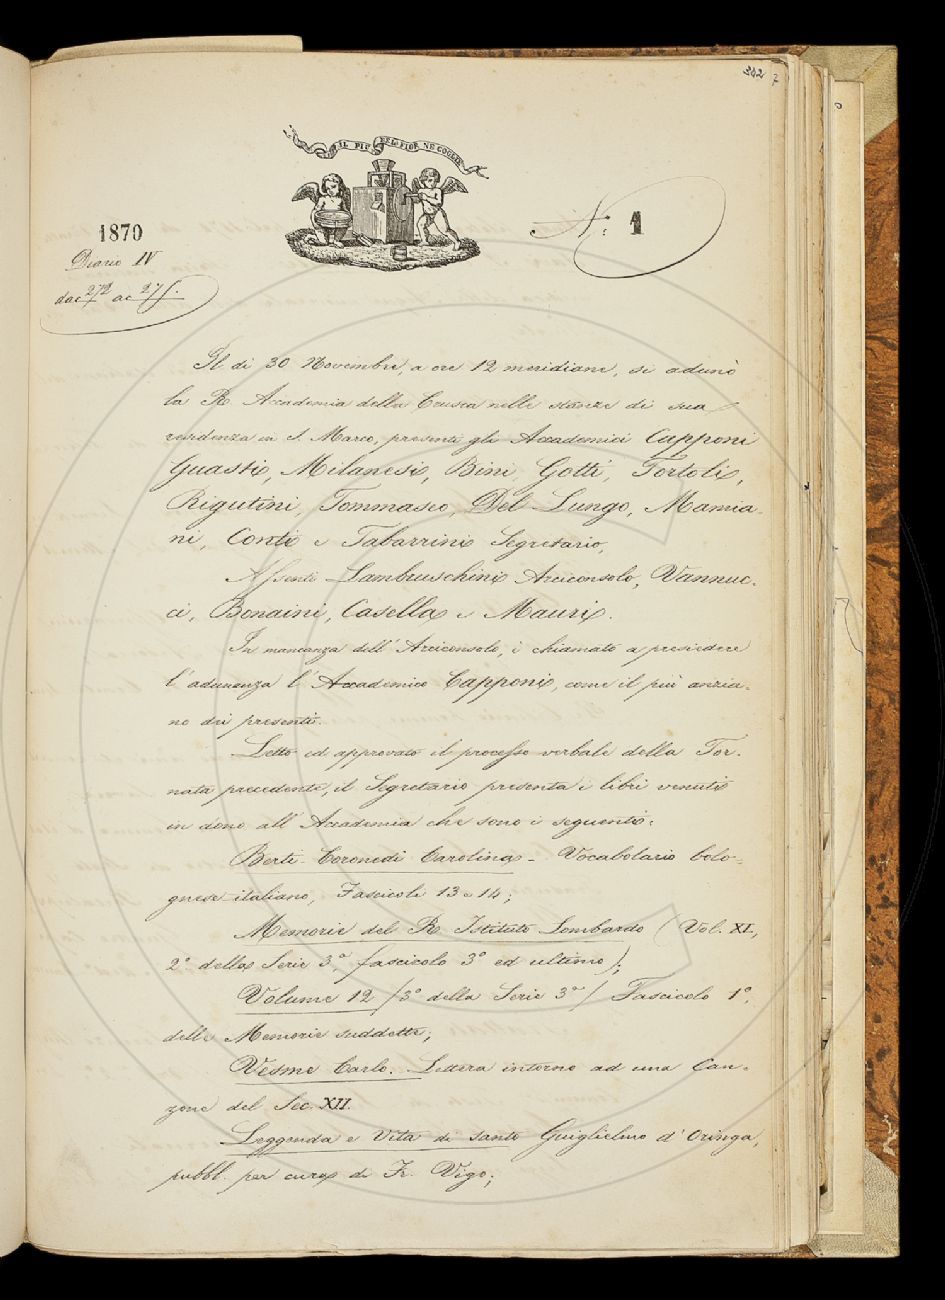 302
IL PIÙ BEL FIOR NE COGLIE
1870
N: 1
Diario IV
da c 272 a c 275.
Il di 30 Novembre, a ore 12 meridiane, si adunò
la R. Accademia della Crusca nelle stanze di sua
residenza in S. Marco, presenti gli Accademici Capponi
Guasti, Milanesi, Bini, Gotti, Tortoli,
Rigutini, Tommaseo, Del Lungo, Mamia-
ni, Conti e Tabarrini Segretario,
Assenti Lambruschini Arciconsolo, Vannuc-
ci, Bonaini, Casella e Mauri.
In mancanza dell' Arciconsolo, è chiamato a presiedere
l'adunanza l'Accademico Capponi, come il più anzia-
no dei presenti.
Letto ed approvato il processo verbale della Tor-
nata precedente, il Segretario presenta i libri venuti
in dono all' Accademia che sono i seguenti:
Berti-Coronedi Carolina - Vocabolario bolo-
gnese-italiano, Fascicoli 13 e 14;
Memorie del R. Istituto Lombardo (Vol. XI,
2° della Serie 3ª, fascicolo 3° ed ultimo);
Volume 12 (3° della Serie 3ª) Fascicolo 1°,
delle Memorie suddette;
Vesme Carlo. Lettera intorno ad una Can-
zone del Sec. XII.
Leggenda e Vita di santo Guiglielmo d'Oringa,
pubbl. per cura di Fr. Vigo;